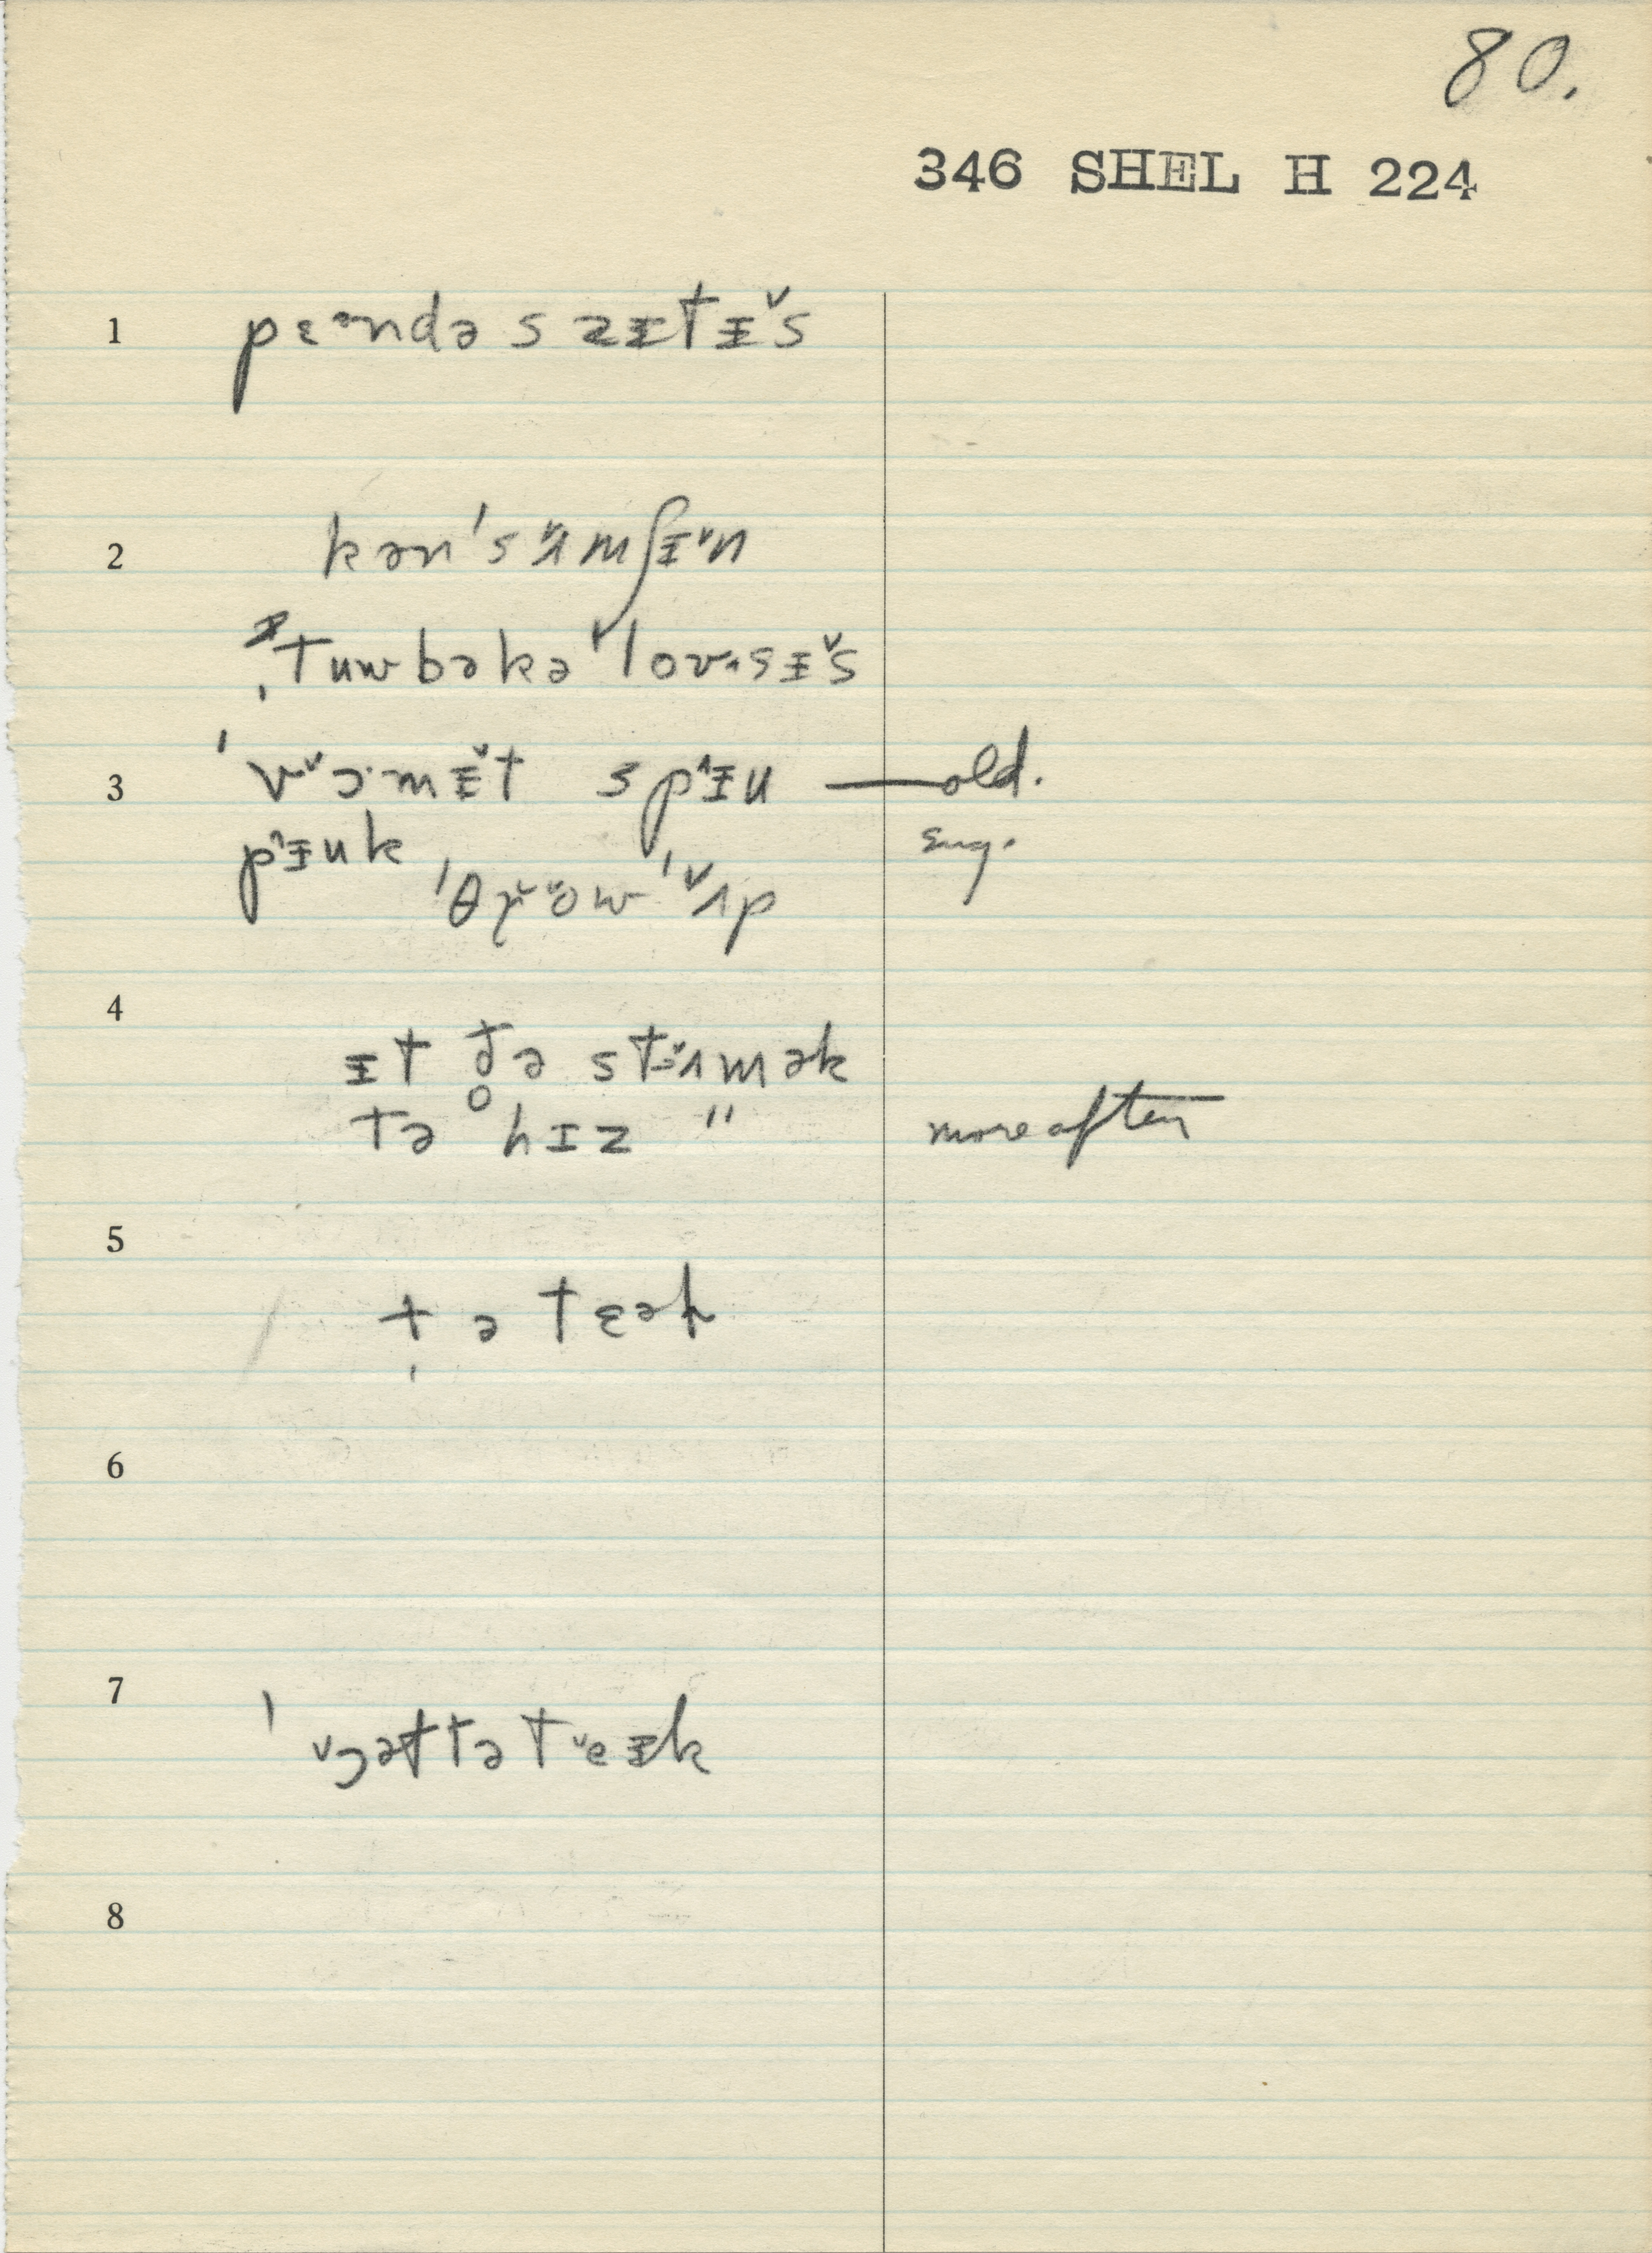 80.
346 SHEL H 224
1 pɛᵊndəsᴢɪtɪ̌s
2 kən'sʌ̌mʃɪ̌n
ˌtuwbəkə'lovᴧsɪ̌s
3 'vɔ̌·mɪ̌t spɪ̂u — old.
pɪ̂uk Eng.
'θrǒw 'ʌ̌p
4
ɪt ðə stʌ̌mək
tə hɪz " more often
5
t̩ə tɛək
6
7 'gɔ̌ət tə těɪk
8